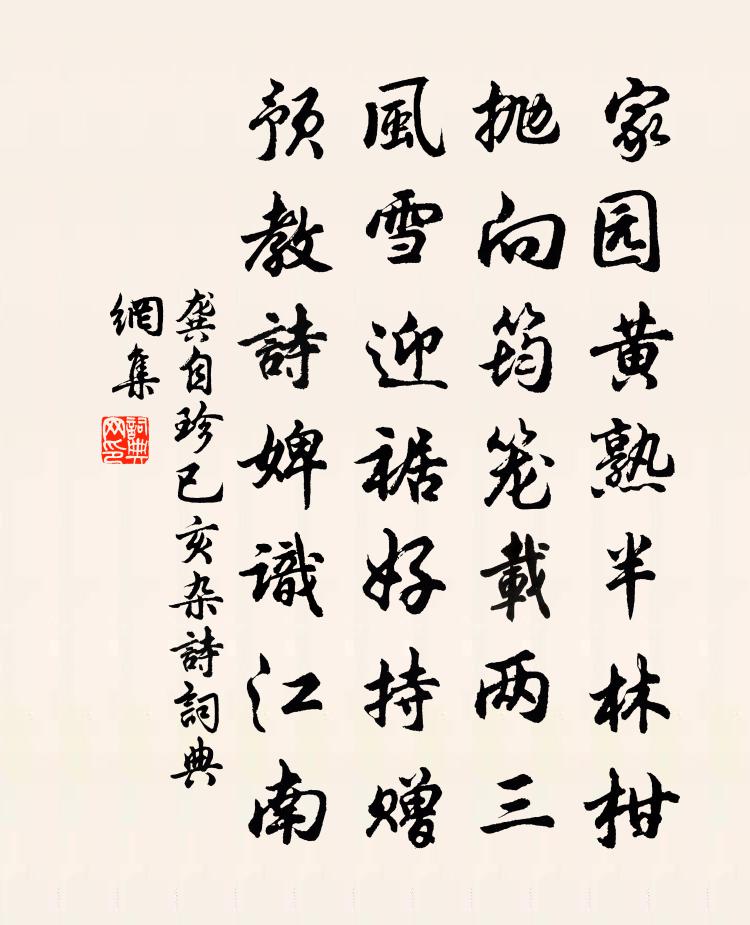 家园黄熟半林柑
抛向筠笼載两三
風雪迎裾好持赠
预教詩婢識江南
龚自珍已亥杂詩詞典
網集
詞典
网印